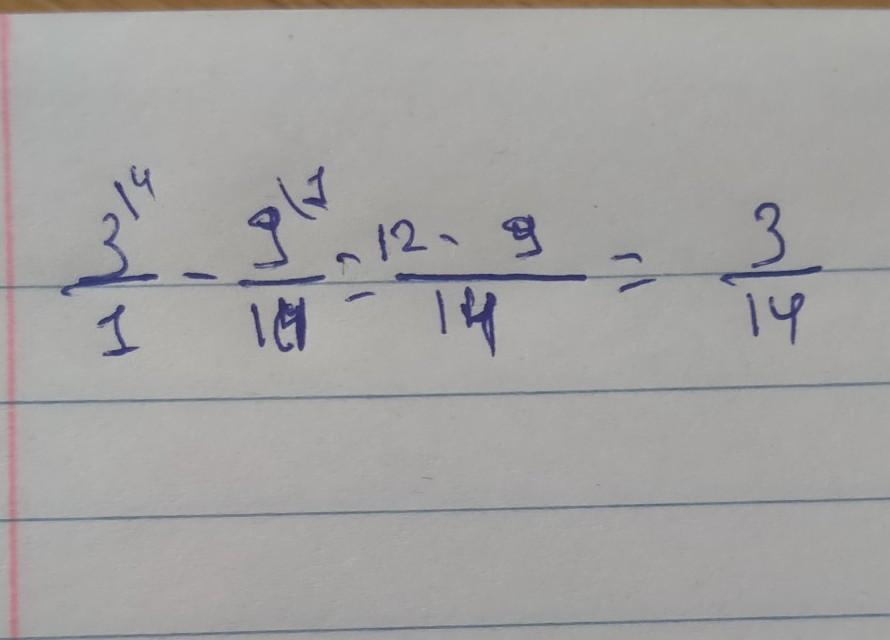 3\14/1 - 9\1/14 = 12 - 9/14 = 3/14